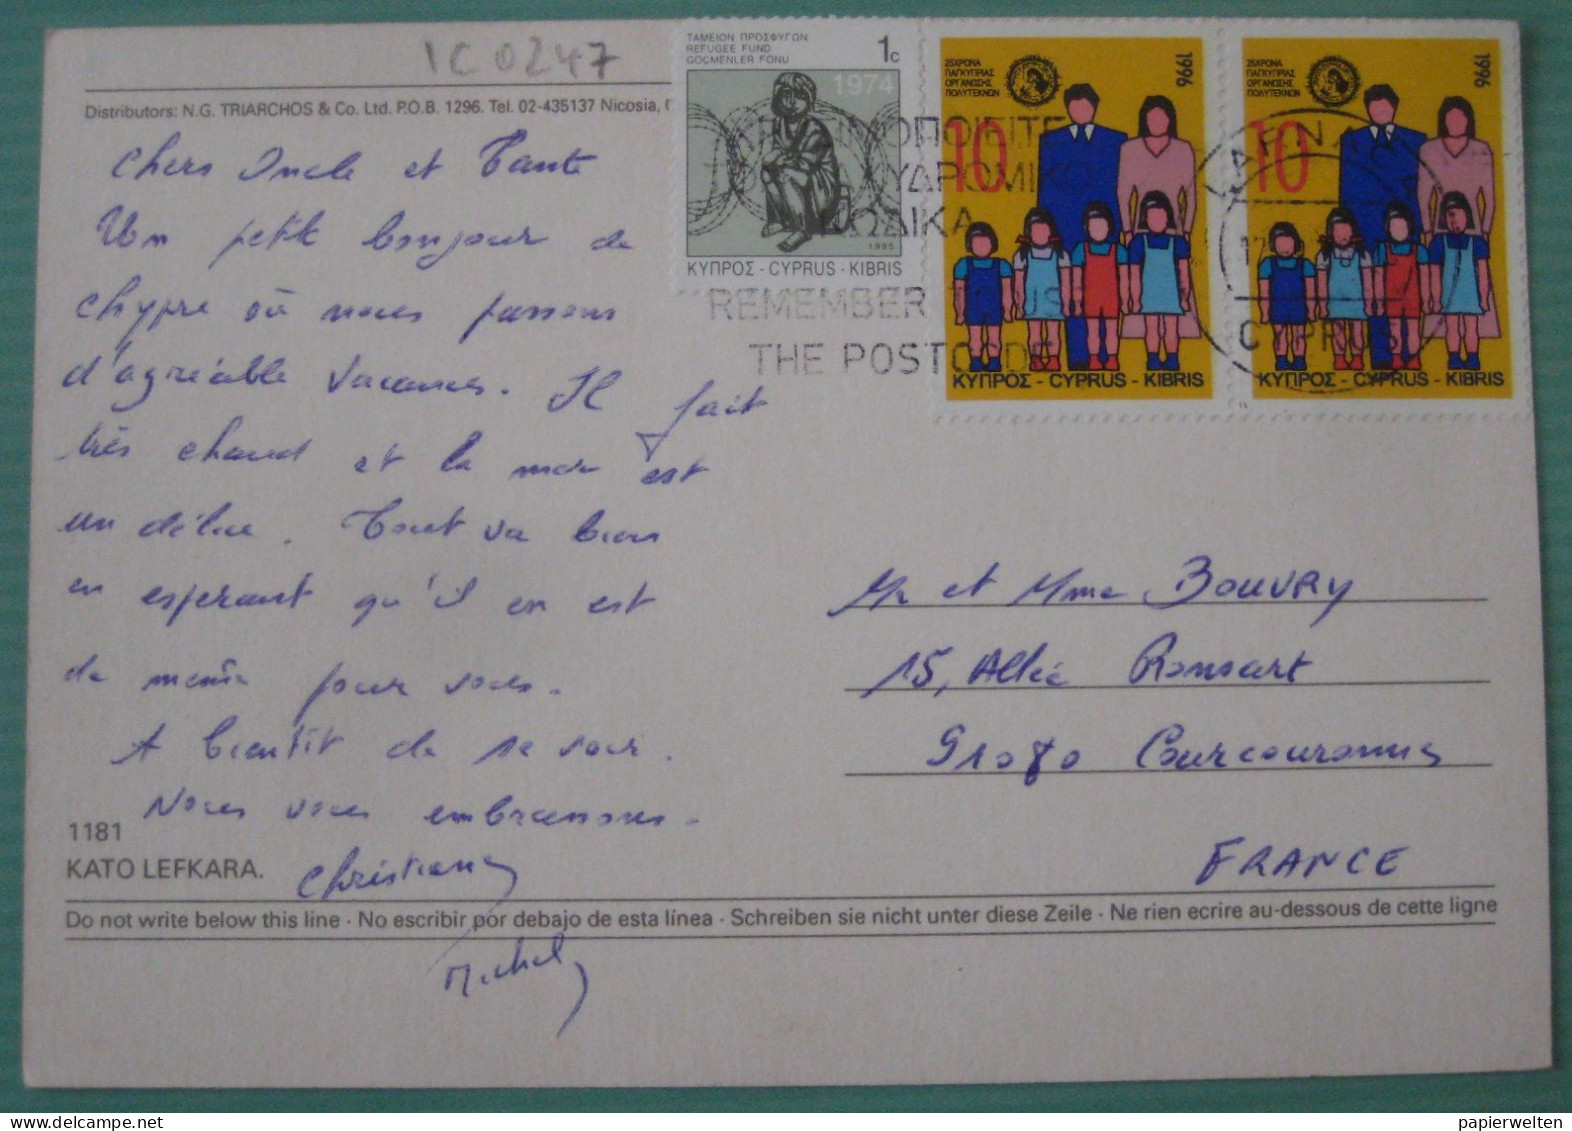 IC 0247
Distributors: N.G. TRIARCHOS & Co. Ltd. P.O.B. 1296. Tel. 02-435137 Nicosia, (
ΤΑΜΕΙΟΝ ΠΡΟΣΦΥΓΩΝ
REFUGEE FUND
GÖÇMENLER FONU
1c
1974
1995
ΚΥΠΡΟΣ - CYPRUS - KIBRIS
25ΧΡΟΝΑ
ΠΑΓΚΥΠΡΙΑΣ
ΟΡΓΑΝΩΣΗΣ
ΠΟΛΥΤΕΚΝΩΝ
1996
10
ΚΥΠΡΟΣ - CYPRUS - KIBRIS
25ΧΡΟΝΑ
ΠΑΓΚΥΠΡΙΑΣ
ΟΡΓΑΝΩΣΗΣ
ΠΟΛΥΤΕΚΝΩΝ
1996
10
ΚΥΠΡΟΣ - CYPRUS - KIBRIS
REMEMBER
THE POSTCODE
CYPRUS
Chers Oncle et Tante
Un petit bonjour de
Chypre où nous passons
d'agréable vacances. Il fait
très chaud et la mer est
un délice. Tout va bien
en esperant qu'il en est
de même pour vous.
A bientôt de se voir.
Nous vous embrassons.
Christiane
Michel
Mr et Mme BOUVRY
15, Allée Ronsart
91080 Courcouronnes
FRANCE
1181
KATO LEFKARA.
Do not write below this line · No escribir por debajo de esta línea · Schreiben sie nicht unter diese Zeile · Ne rien ecrire au-dessous de cette ligne
papierwelten